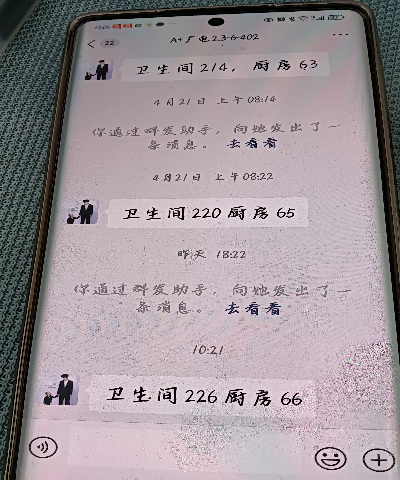 22
A+广电2.3-6-402
卫生间214, 厨房63
4月21日 上午08:14
你通过群发助手，向她发出了一
条消息。 去看看
4月21日 上午08:22
卫生间220厨房65
昨天 18:22
你通过群发助手，向她发出了一
条消息。 去看看
10:21
卫生间226厨房66